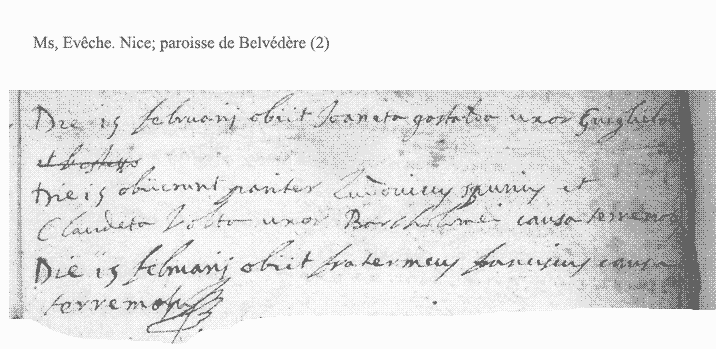 Ms, Evêche. Nice; paroisse de Belvédère (2)
Die 15 februarij obiit Joaneta gastalda uxor Guglielmi
et
Die 15 obierunt pariter Ludovicus et
Claudeta Volta uxor Bartholomei causa terremotus
Die 15 februarij obiit frater meus franciscus causa
terremotus